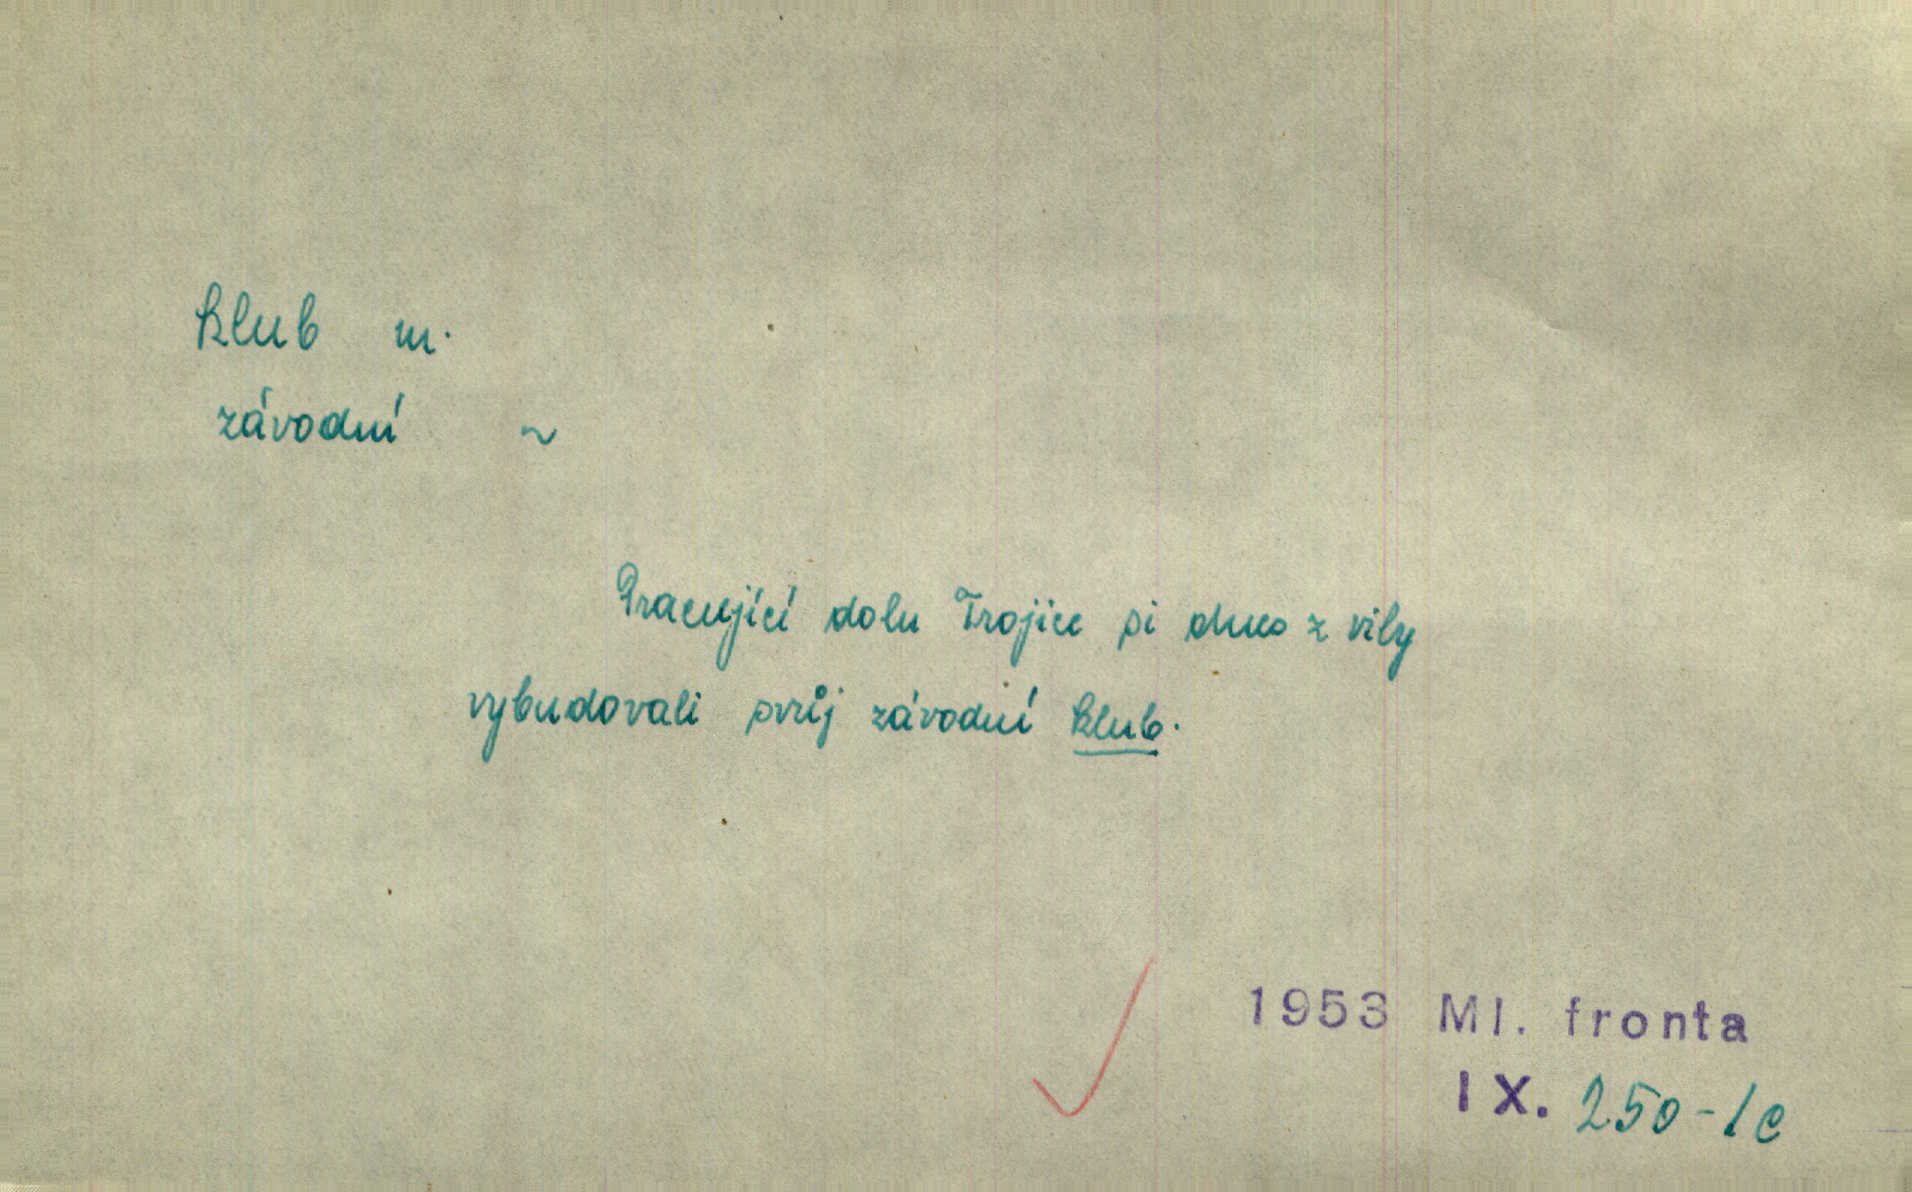 klub m.
závodní ~
Pracující dolu Trojice si dnes z vily
vybudovali svůj závodní klub.
1953 Ml. fronta
IX. 250-1c